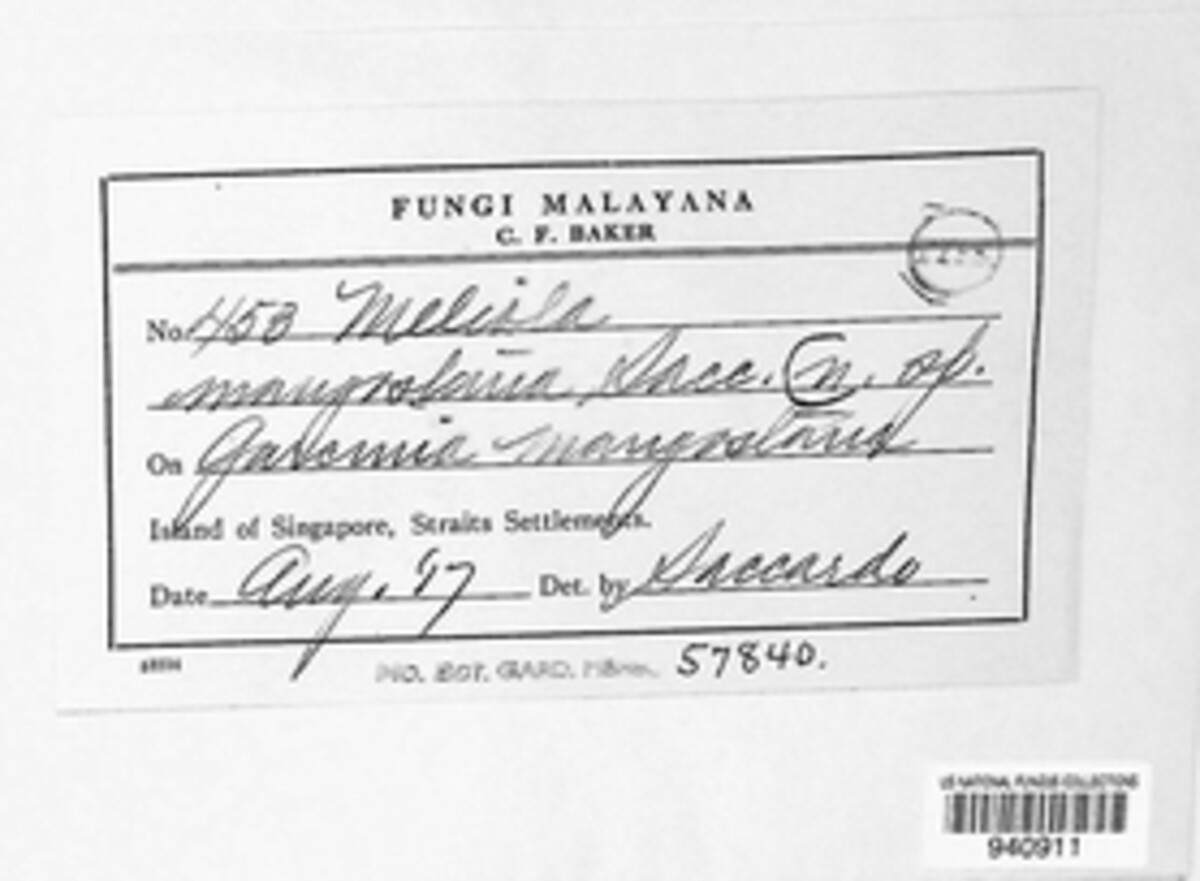 FUNGI MALAYANA
C. F. BAKER
No. 453 Meliola
mangostana Sacc. n. sp.
On Garcinia mangostana
Island of Singapore, Straits Settlements.
Date Aug. '17 Det. by Saccardo
MO. BOT. GARD. Herb. 57840.
US NATIONAL FUNGUS COLLECTIONS
940911